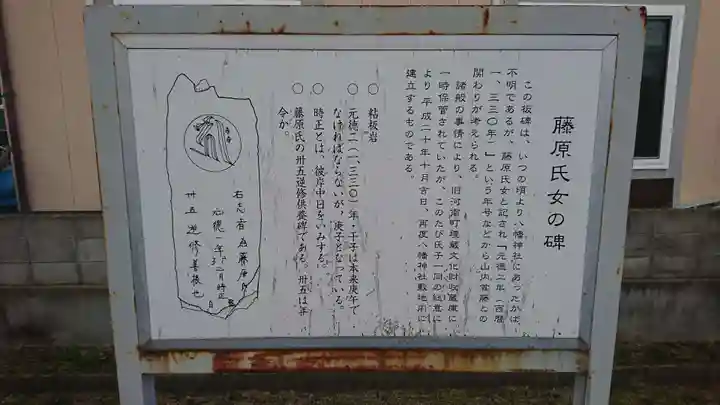 藤原氏女の碑
この板碑は、いつの頃より八幡神社にあったかは
不明であるが、藤原氏女と記され「元徳二年(西暦
一、三三〇年)」という年号などから山内首藤との
関わりが考えられる。
諸般の事情により、旧河南町埋蔵文化財収蔵庫に
一時保管されていたが、このたび氏子一同の総意に
より平成二十年十月吉日、再度八幡神社敷地内に
建立するものである。
○ 粘板岩
○ 元徳二(一、三三〇)年・干子は本来庚午で
なければならないが、庚子となっている。
○ 時正とは、彼岸中日をいみする。
○ 藤原氏の卅五逆修供養碑である。卅五は年
令か。
右志者為藤原氏
元徳二年二月時正
卅五逆修善根也